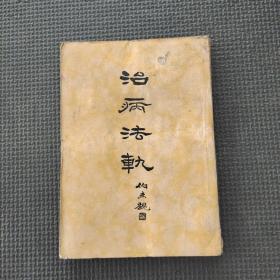 治病法軌